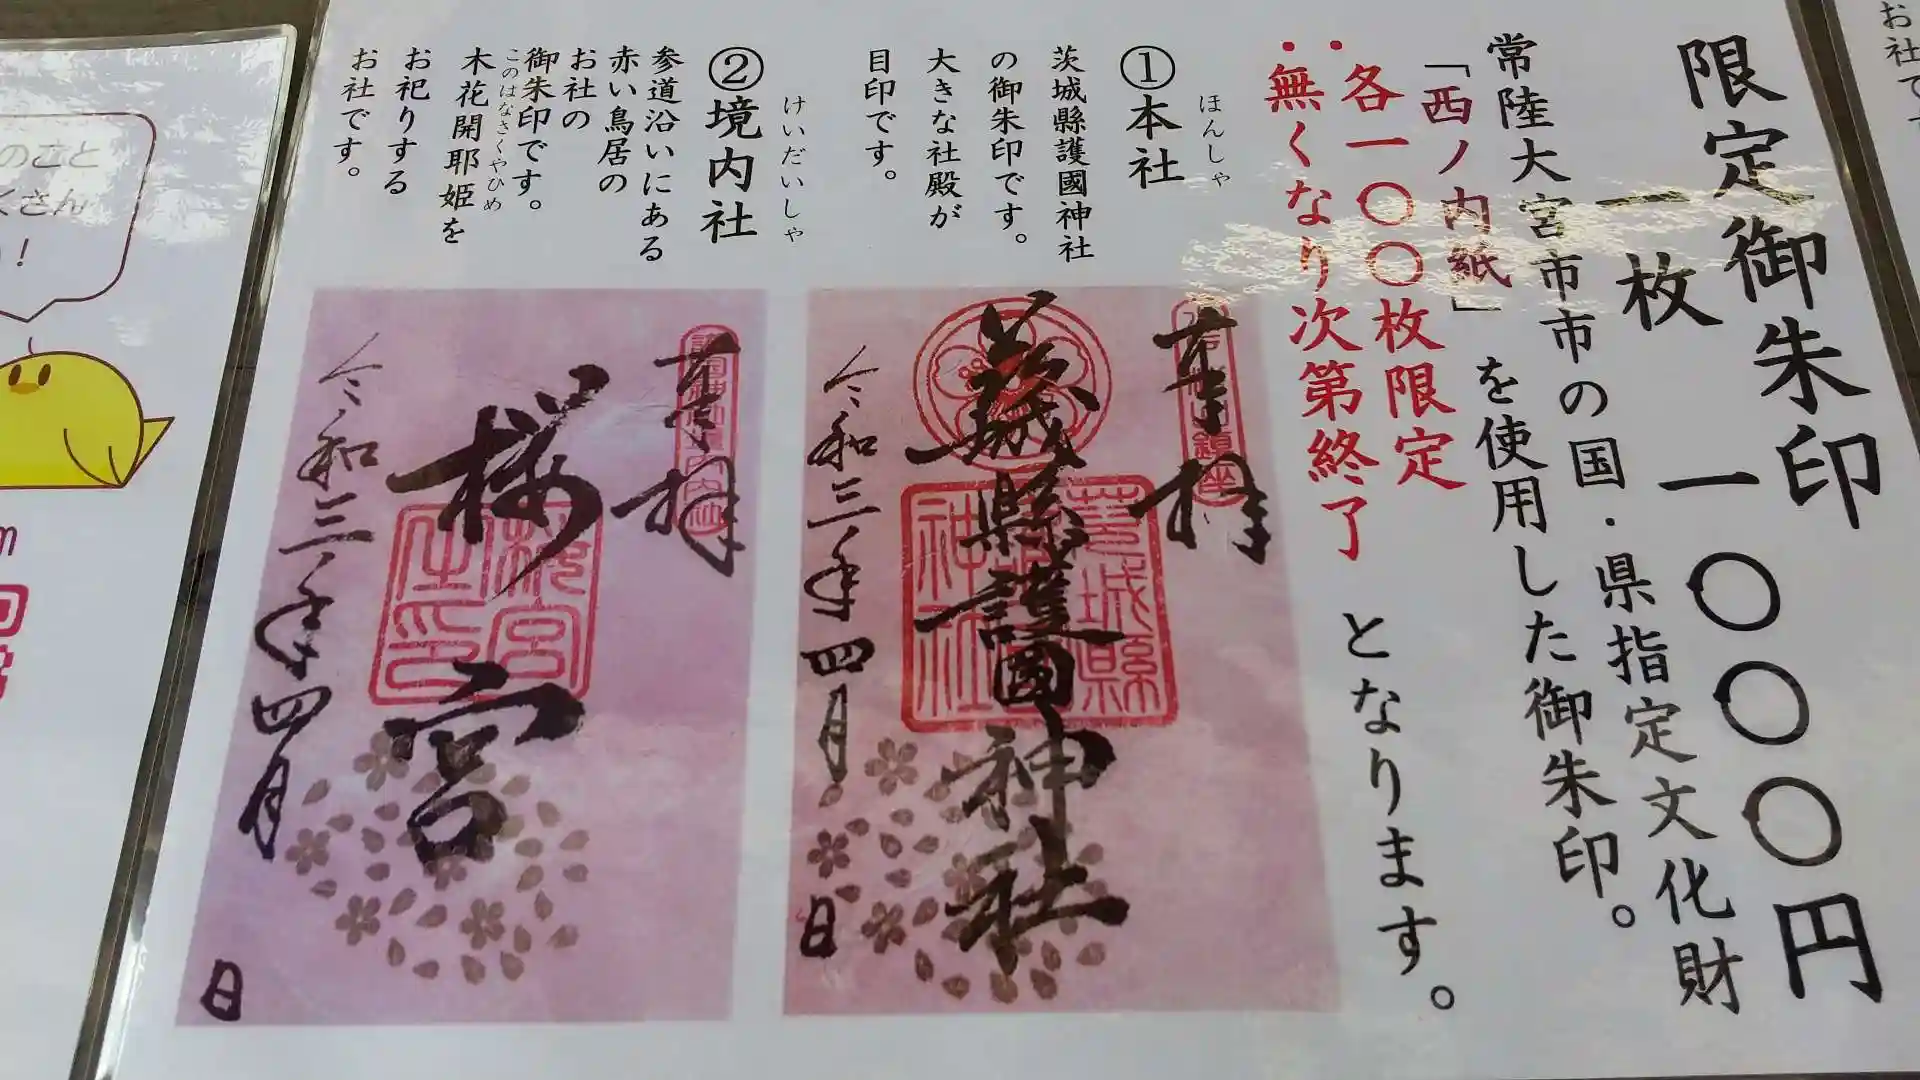 限定御朱印
一枚 一〇〇〇円
常陸大宮市市の国・県指定文化財
「西ノ内紙」を使用した御朱印。
各一〇〇枚限定
無くなり次第終了となります。
ほんしゃ
①本社
茨城縣護國神社
の御朱印です。
大きな社殿が
目印です。
けいだいしゃ
②境内社
参道沿いにある
赤い鳥居の
お社の
御朱印です。
このはなさくやひめ
木花開耶姫を
お祀りする
お社です。
奉拝
茨城縣護國神社
茨城縣
神社
令和三年四月 日
奉拝
桜宮
桜宮
令和三年四月 日
のこと
くさん
!
m
お社で